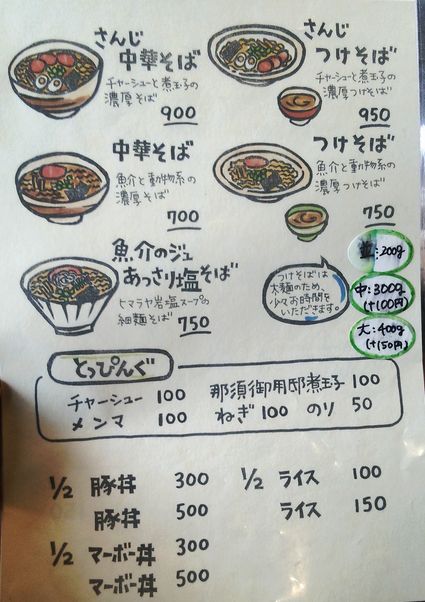 さんじ
中華そば
チャーシューと煮玉子の
濃厚そば
900
さんじ
つけそば
チャーシューと煮玉子の
濃厚つけそば
950
中華そば
魚介と動物系の
濃厚そば
700
つけそば
魚介と動物系の
濃厚つけそば
750
魚介のジュ
あっさり塩そば
ヒマラヤ岩塩スープの
細麺そば 750
つけそばは
太麺のため、
少々お時間を
いただきます。
並:200g
中:300g
(+100円)
大:400g
(+150円)
とっぴんぐ
チャーシュー 100
メンマ 100
那須御用邸煮玉子 100
ねぎ 100 のり 50
1/2 豚丼 300
豚丼 500
1/2 マーボー丼 300
マーボー丼 500
1/2 ライス 100
ライス 150